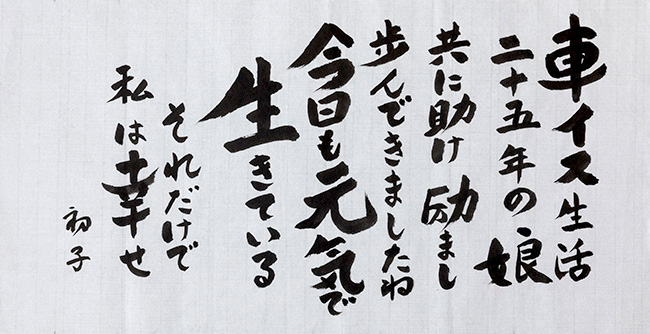 車イス生活
二十五年の娘
共に助け励まし
歩んできましたね
今日も元気で
生きている
それだけで
私は幸せ
初子